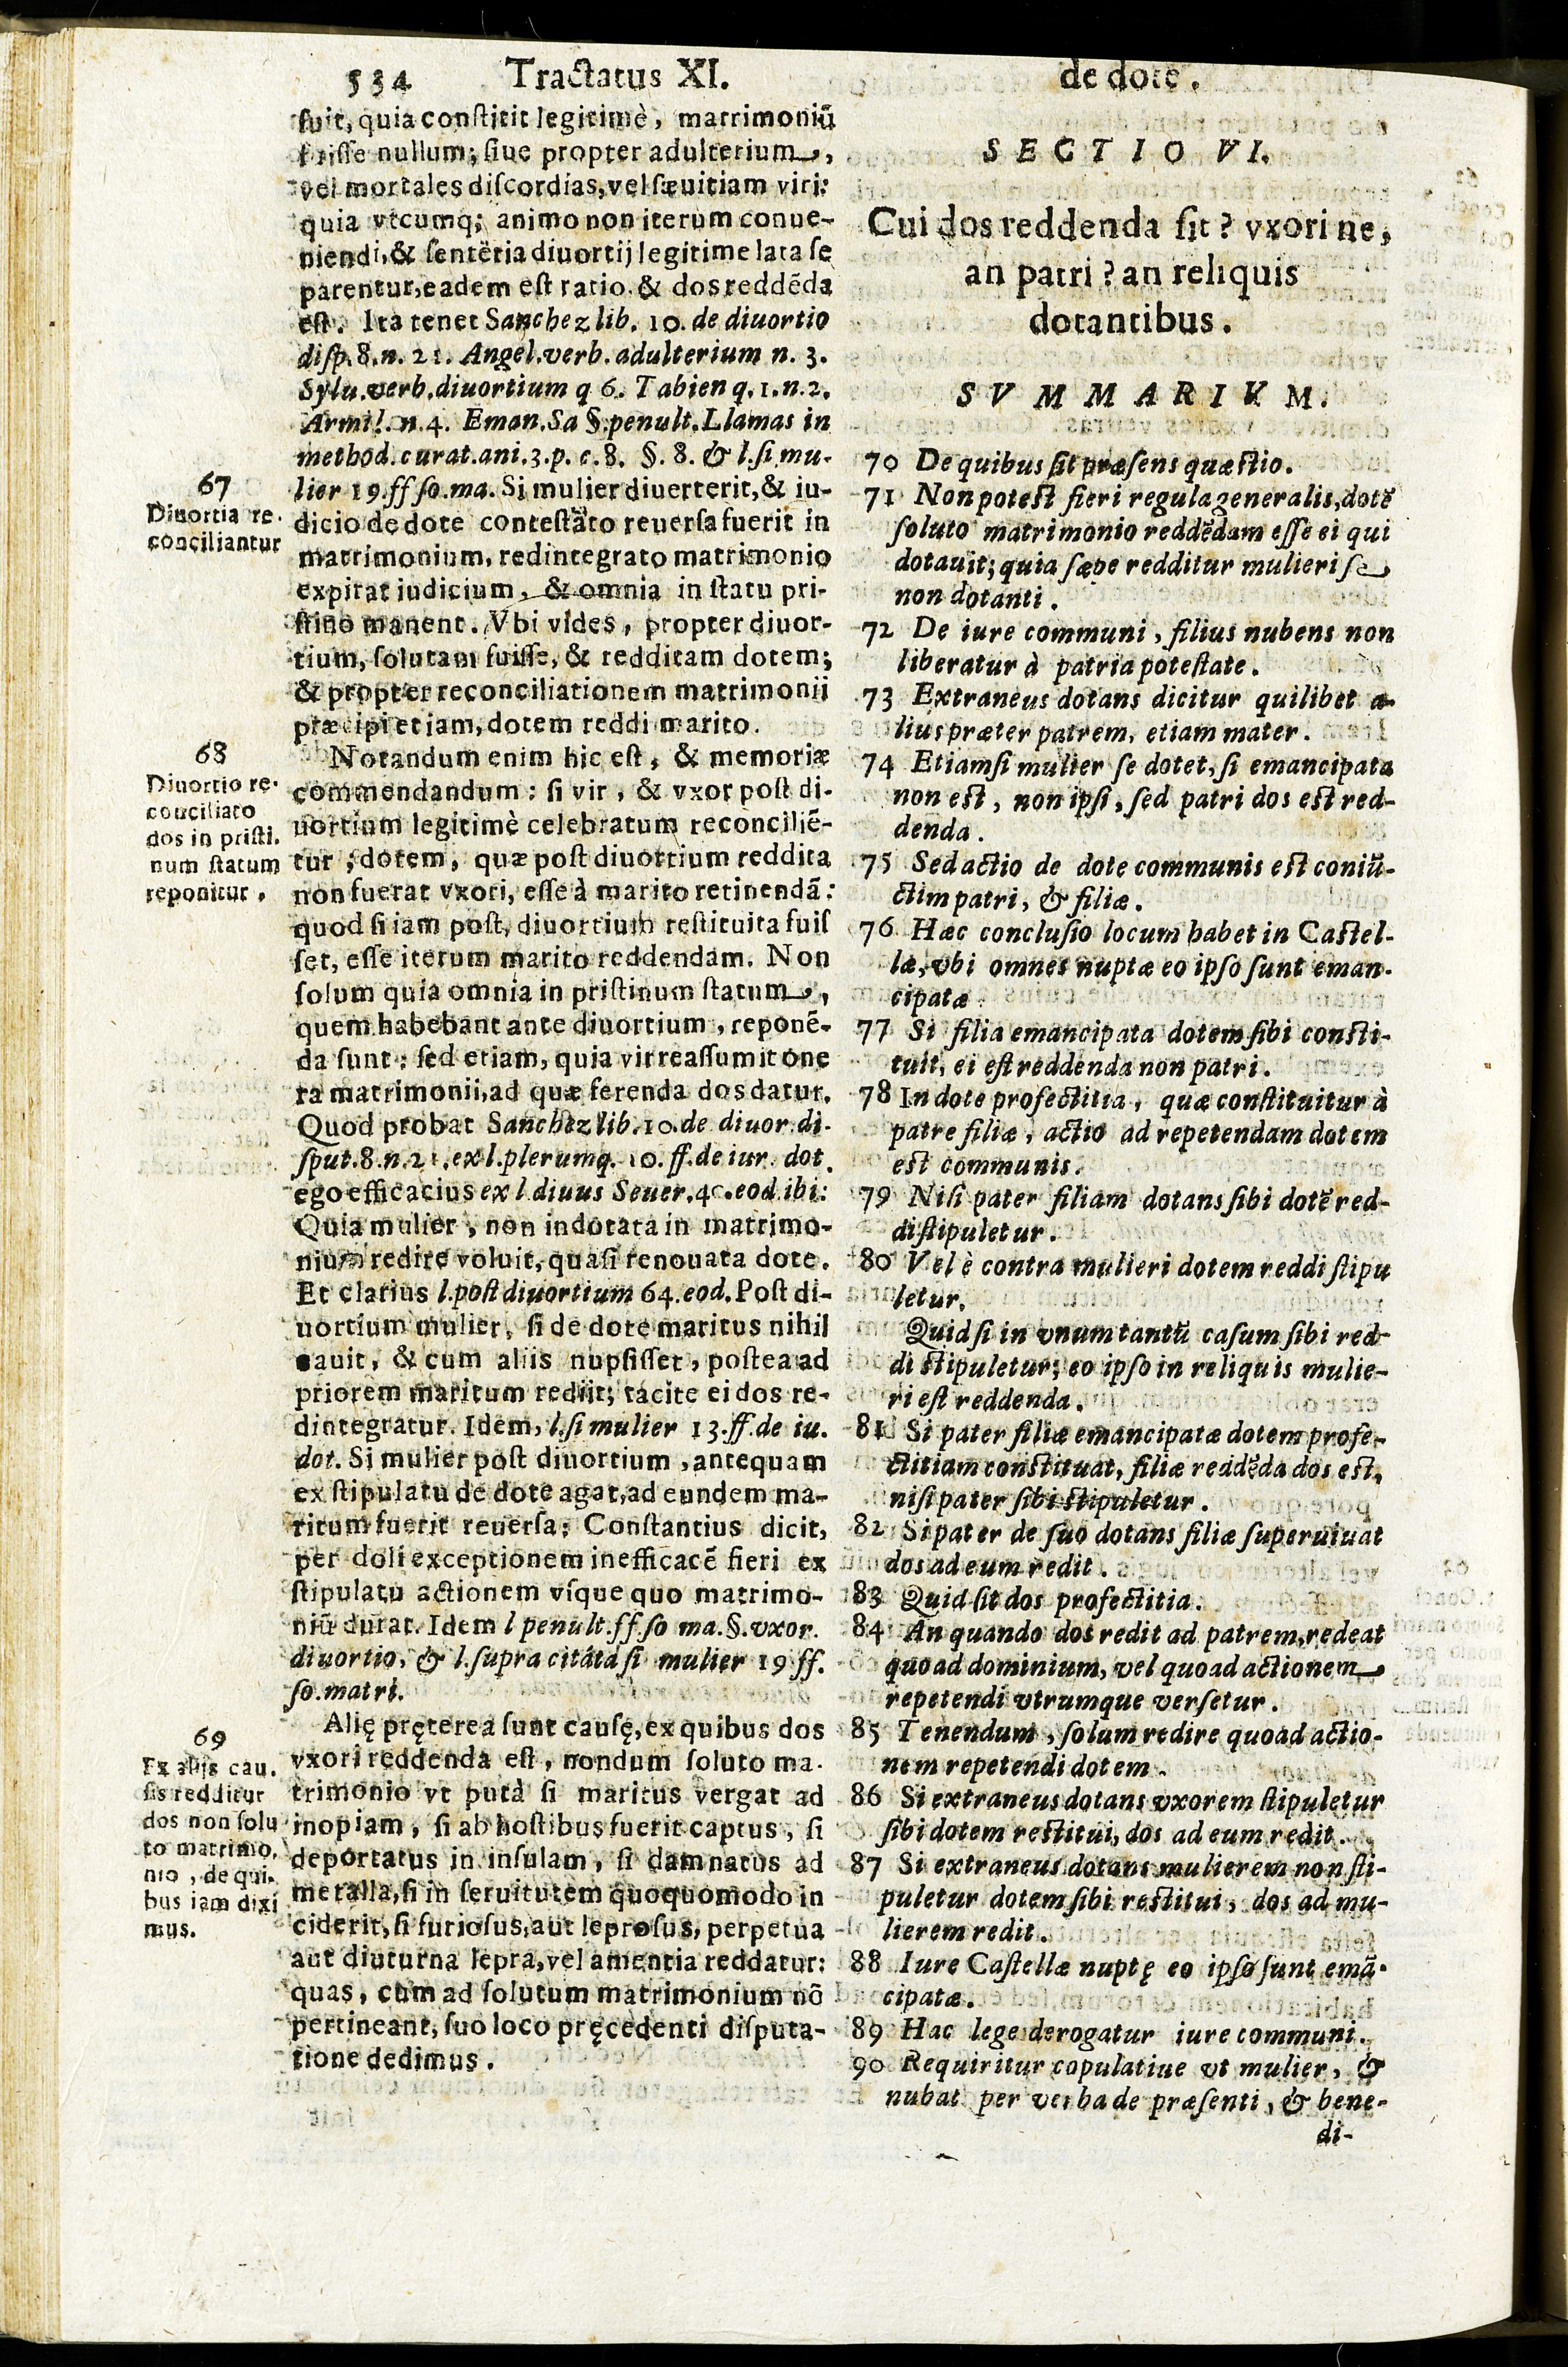 534 Tractatus XI. de dote.
fuit, quia constitit legitimè, matrimoniũ
fuisse nullum; siue propter adulterium,
vel mortales discordias, vel sæuitiam viri:
quia vtcumq; animo non iterum conue-
niendi, & sentẽtia diuortij legitime lata se
parentur, eadem est ratio. & dos reddẽda
est. Ita tenet Sanchez lib. 10. de diuortio
disp. 8. n. 21. Angel. verb. adulterium n. 3.
Sylu. verb. diuortium q 6. Tabien q. 1. n. 2.
Armil. n. 4. Eman. Sa §. penult. Llamas in
method. curat. ani. 3. p. c. 8. §. 8. & l. si mu-
67
Diuortia re-
conciliantur
lier 19. ff so. ma. Si mulier diuerterit, & iu-
dicio de dote contestato reuersa fuerit in
matrimonium, redintegrato matrimonio
expirat iudicium, & omnia in statu pri-
stino manent. Vbi vides, propter diuor-
tium, solutam fuisse, & redditam dotem;
& propter reconciliationem matrimonii
præcipi etiam, dotem reddi marito.
68
Diuortio re-
conciliato
dos in pristi-
num statum
reponitur.
Notandum enim hic est, & memoriæ
commendandum: si vir, & vxor post di-
uortium legitimè celebratum reconciliẽ-
tur; dotem, quæ post diuortium reddita
non fuerat vxori, esse à marito retinendã:
quod si iam post, diuortium restituita fuis
set, esse iterum marito reddendam. Non
solum quia omnia in pristinum statum,
quem habebant ante diuortium, reponẽ-
da sunt: sed etiam, quia vir reassumit one
ra matrimonii, ad quæ ferenda dos datur.
Quod probat Sanchez lib. 10. de diuor. di-
sput. 8. n. 21. ex l. plerumq. 10. ff. de iur. dot.
ego efficacius ex l diuus Seuer. 40. eod. ibi:
Quia mulier, non indotata in matrimo-
nium redire voluit, quasi renouata dote.
Et clarius l. post diuortium 64. eod. Post di-
uortium mulier, si de dote maritus nihil
cauit, & cum aliis nupsisset, postea ad
priorem maritum rediit; tacite ei dos re-
dintegratur. Idem, l. si mulier 13. ff. de iu.
dot. Si mulier post diuortium, antequam
ex stipulatu de dote agat, ad eundem ma-
ritum fuerit reuersa; Constantius dicit,
per doli exceptionem inefficacẽ fieri ex
stipulatu actionem vsque quo matrimo-
niũ durat. Idem l penult. ff. so ma. §. vxor.
diuortio, & l. supra citáta si mulier 19 ff.
so. matri.
69
Ex aliis cau-
sis redditur
dos non solu
to matrimo,
nio, de qui-
bus iam dixi
mus.
Alię pręterea sunt causę, ex quibus dos
vxori reddenda est, nondum soluto ma-
trimonio vt putà si maritus vergat ad
inopiam, si ab hostibus fuerit captus, si
deportatus in insulam, si damnatus ad
metalla, si in seruitutem quoquomodo in
ciderit, si furiosus, aut leprosus, perpetua
aut diuturna lepra, vel amentia reddatur:
quas, cum ad solutum matrimonium nõ
pertineant, suo loco pręcedenti disputa-
tione dedimus.
SECTIO VI.
Cui dos reddenda sit? vxori ne,
an patri? an reliquis
dotantibus.
SVMMARIVM.
70 De quibus sit præsens quæstio.
71 Non potest fieri regula generalis, dotẽ
soluto matrimonio reddẽdam esse ei qui
dotauit; quia sæpe redditur mulieri se
non dotanti.
72 De iure communi, filius nubens non
liberatur à patria potestate.
73 Extraneus dotans dicitur quilibet a-
lius præter patrem, etiam mater.
74 Etiamsi mulier se dotet, si emancipata
non est, non ipsi, sed patri dos est red-
denda.
75 Sed actio de dote communis est coniũ-
ctim patri, & filiæ.
76 Hæc conclusio locum habet in Castel-
læ, vbi omnes nuptæ eo ipso sunt eman-
cipatæ.
77 Si filia emancipata dotem sibi consti-
tuit, ei est reddenda non patri.
78 In dote profectitia, quæ constituitur à
patre filiæ, actio ad repetendam dotem
est communis.
79 Nisi pater filiam dotans sibi dotẽ red-
di stipuletur.
80 Vel è contra mulieri dotem reddi stipu
letur.
Quid si in vnum tantũ casum sibi red-
di stipuletur; eo ipso in reliquis mulie-
ri est reddenda.
81 Si pater filiæ emancipatæ dotem profe-
ctitiam constituat, filiæ reddẽda dos est,
nisi pater sibi stipuletur.
82 Si pater de suo dotans filiæ superuiuat
dos ad eum redit.
83 Quid sit dos profectitia.
84 An quando dos redit ad patrem, redeat
quoad dominium, vel quoad actionem
repetendi vtrumque versetur.
85 Tenendum, solum redire quoad actio-
nem repetendi dotem.
86 Si extraneus dotans vxorem stipuletur
sibi dotem restitui, dos ad eum redit.
87 Si extraneus dotans mulierem non sti-
puletur dotem sibi restitui, dos ad mu-
lierem redit.
88 Iure Castellæ nuptę eo ipso sunt emã-
cipatæ.
89 Hac lege derogatur iure communi.
90 Requiritur copulatiue vt mulier, &
nubat per verba de præsenti, & bene-
di-